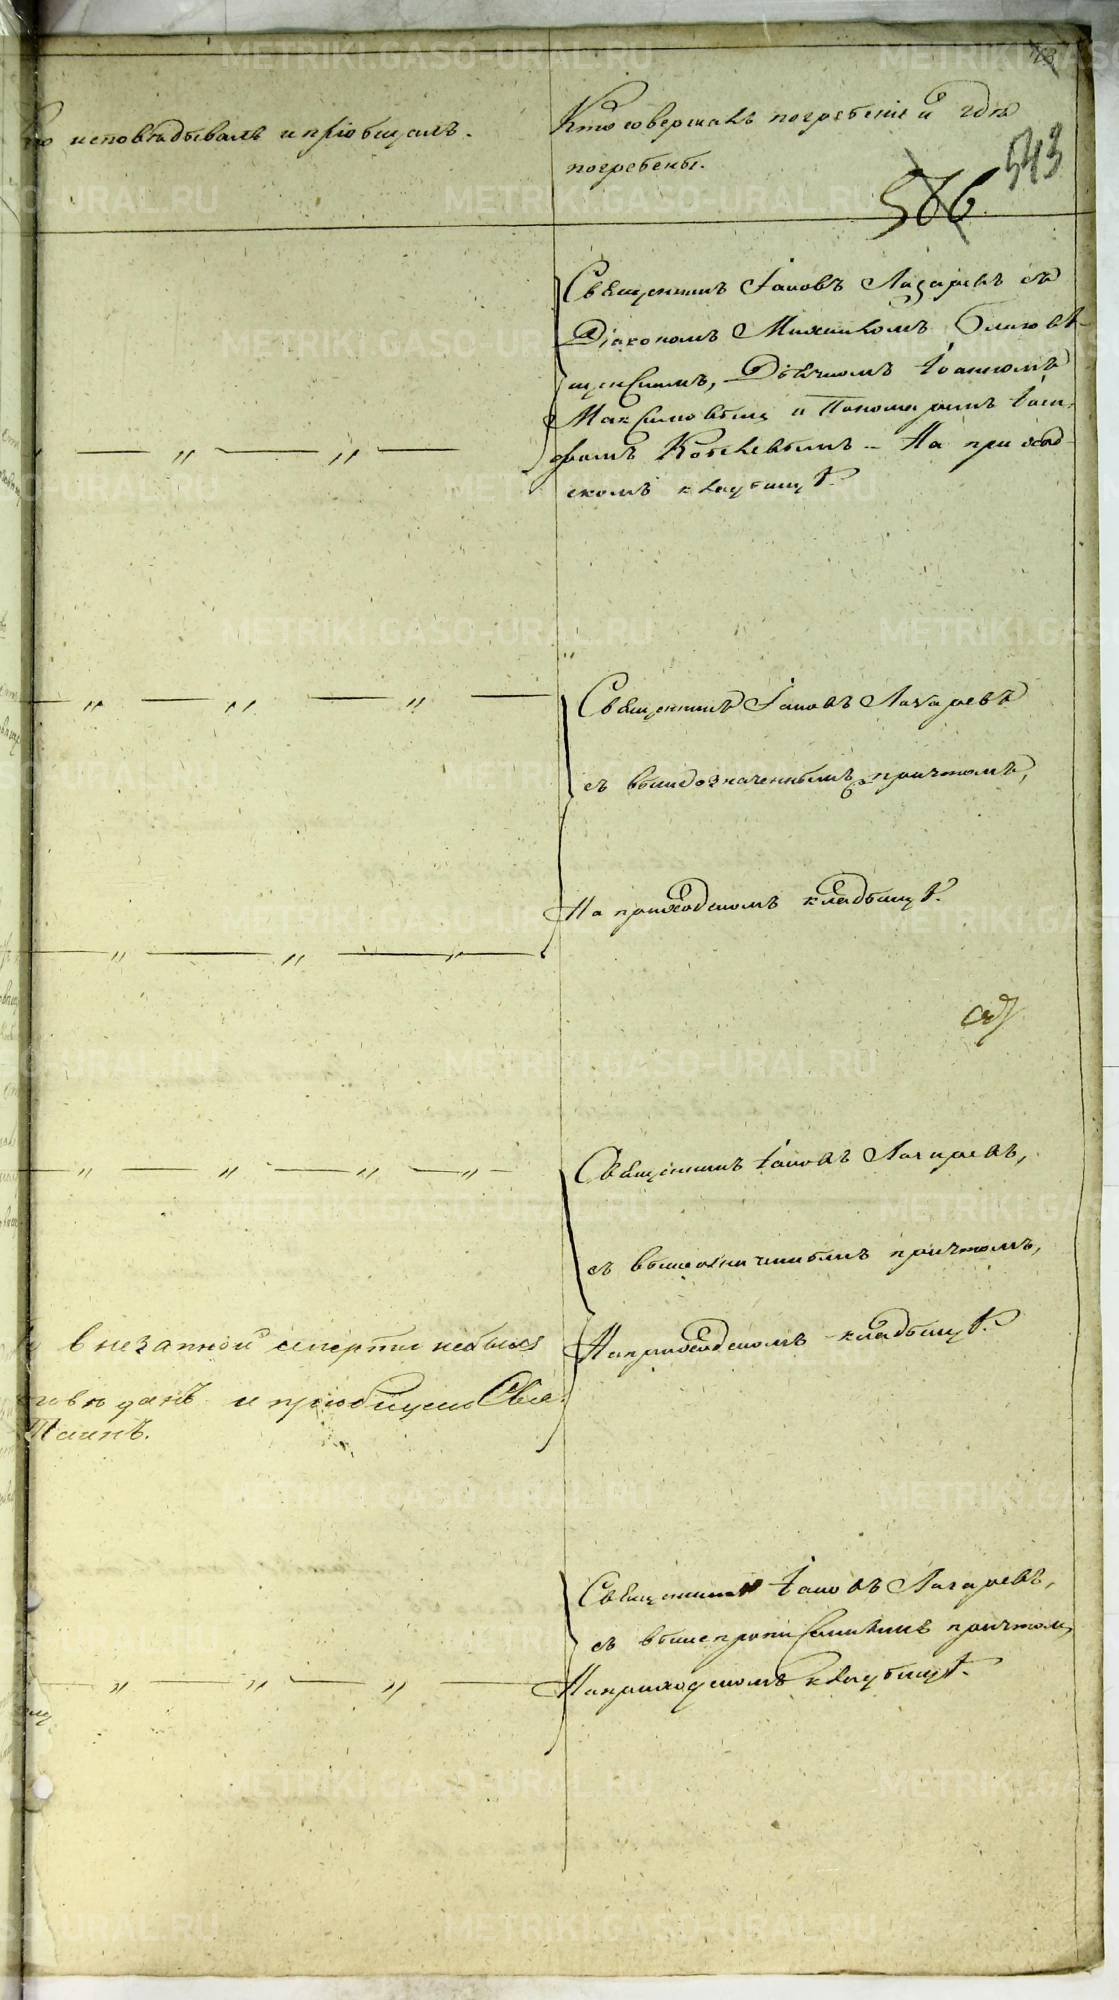 исповѣдывалъ и пріобщалъ.
Кто совершалъ погребеніе и гдѣ
погребены.
543
566
Священникъ Іаковъ Лазаревъ съ
Діакономъ Михаиломъ Благовѣ-
щенскимъ, Дьячкомъ Іоанномъ
Максимовымъ и Пономаремъ Іоси-
фомъ Кобелевымъ – На приход-
скомъ кладбищѣ.
Священникъ Іаковъ Лазаревъ
съ вышеозначеннымъ причтомъ,
На приходскомъ кладбищѣ.
Священникъ Іаковъ Лазаревъ,
съ вышеозначеннымъ причтомъ,
На приходскомъ кладбищѣ.
внезапной смерти небылъ
и пріобщенъ Свя.
Таинъ.
Священникъ Іаковъ Лазаревъ,
съ вышепрописаннымъ причтом,
На приходскомъ кладбищѣ.
METRIKI.GASO-URAL.RU